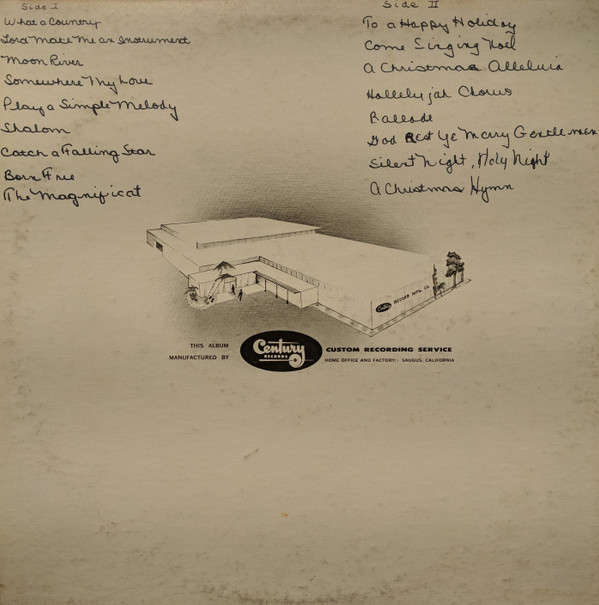 Side I
What a Country
Lord Make Me an Instrument
Moon River
Somewhere My Love
Play a Simple Melody
Shalom
Catch a Falling Star
Born Free
The Magnificat
Side II
To a Happy Holiday
Come Singing Noel
A Christmas Alleluia
Hallelujah Chorus
Ballade
God Rest Ye Merry Gentlemen
Silent Night, Holy Night
A Christmas Hymn
Century RECORD MFG. CO.
THIS ALBUM
MANUFACTURED BY
Century
RECORDS
CUSTOM RECORDING SERVICE
HOME OFFICE AND FACTORY: SAUGUS, CALIFORNIA